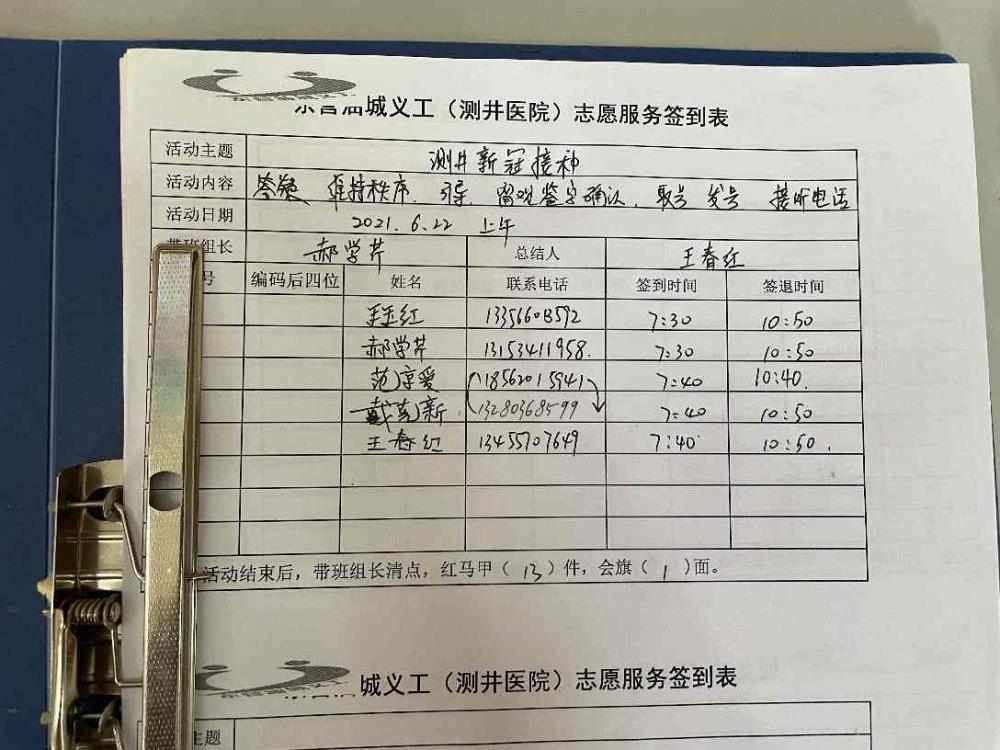 东营油城义工（测井医院）志愿服务签到表
活动主题 测井新冠接种
活动内容 答疑 维持秩序. 引导. 留观签字确认. 取号 发号 接听电话
活动日期 2021.6.22 上午
带班组长 郝学芹 总结人 王春红
号 编码后四位 姓名 联系电话 签到时间 签退时间
王玉红 13356608592 7:30 10:50
郝学芹 13153411958. 7:30 10:50
范享爱 18562015941 7:40 10:40.
戴克新. 13280368599 7:40 10:50
王春红 13455707649 7:40 10:50.
活动结束后，带班组长清点，红马甲（13）件，会旗（1）面。
城义工（测井医院）志愿服务签到表
主题